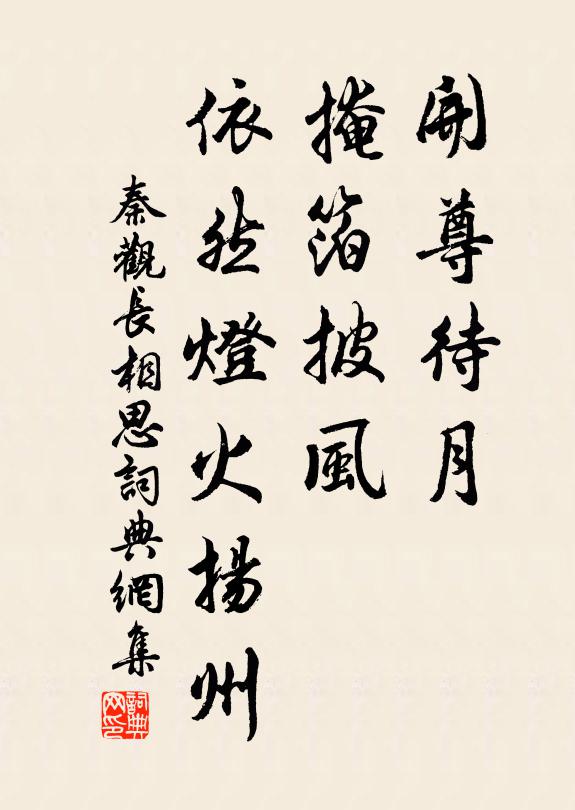 開尊待月
掩箔披風
依然燈火揚州
秦觀長相思詞典網集
詞典网印